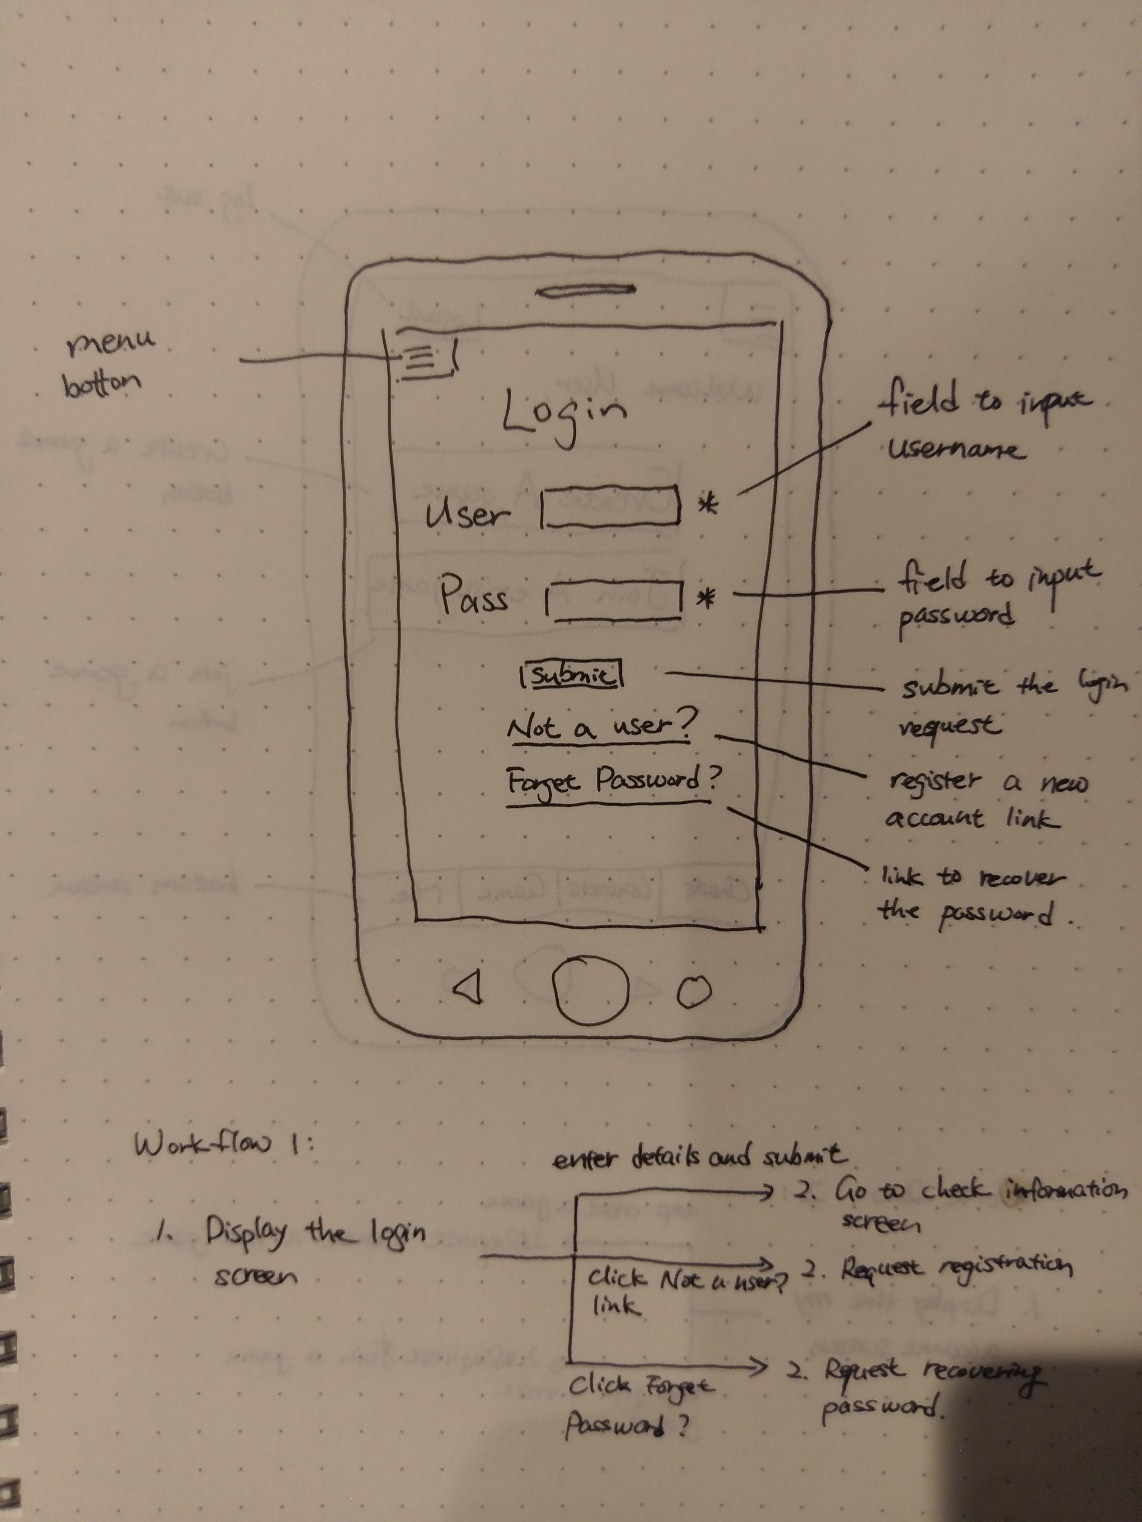 menu
botton
Login
User *
Pass *
Submit
Not a user?
Forget Password?
field to input
username
field to input
password
submit the login
request
register a new
account link
link to recover
the password.
Workflow 1:
1. Display the login
screen
enter details and submit
2. Go to check information
screen
click Not a user?
link
2. Request registration
Click Forget
Password?
2. Request recovering
password.